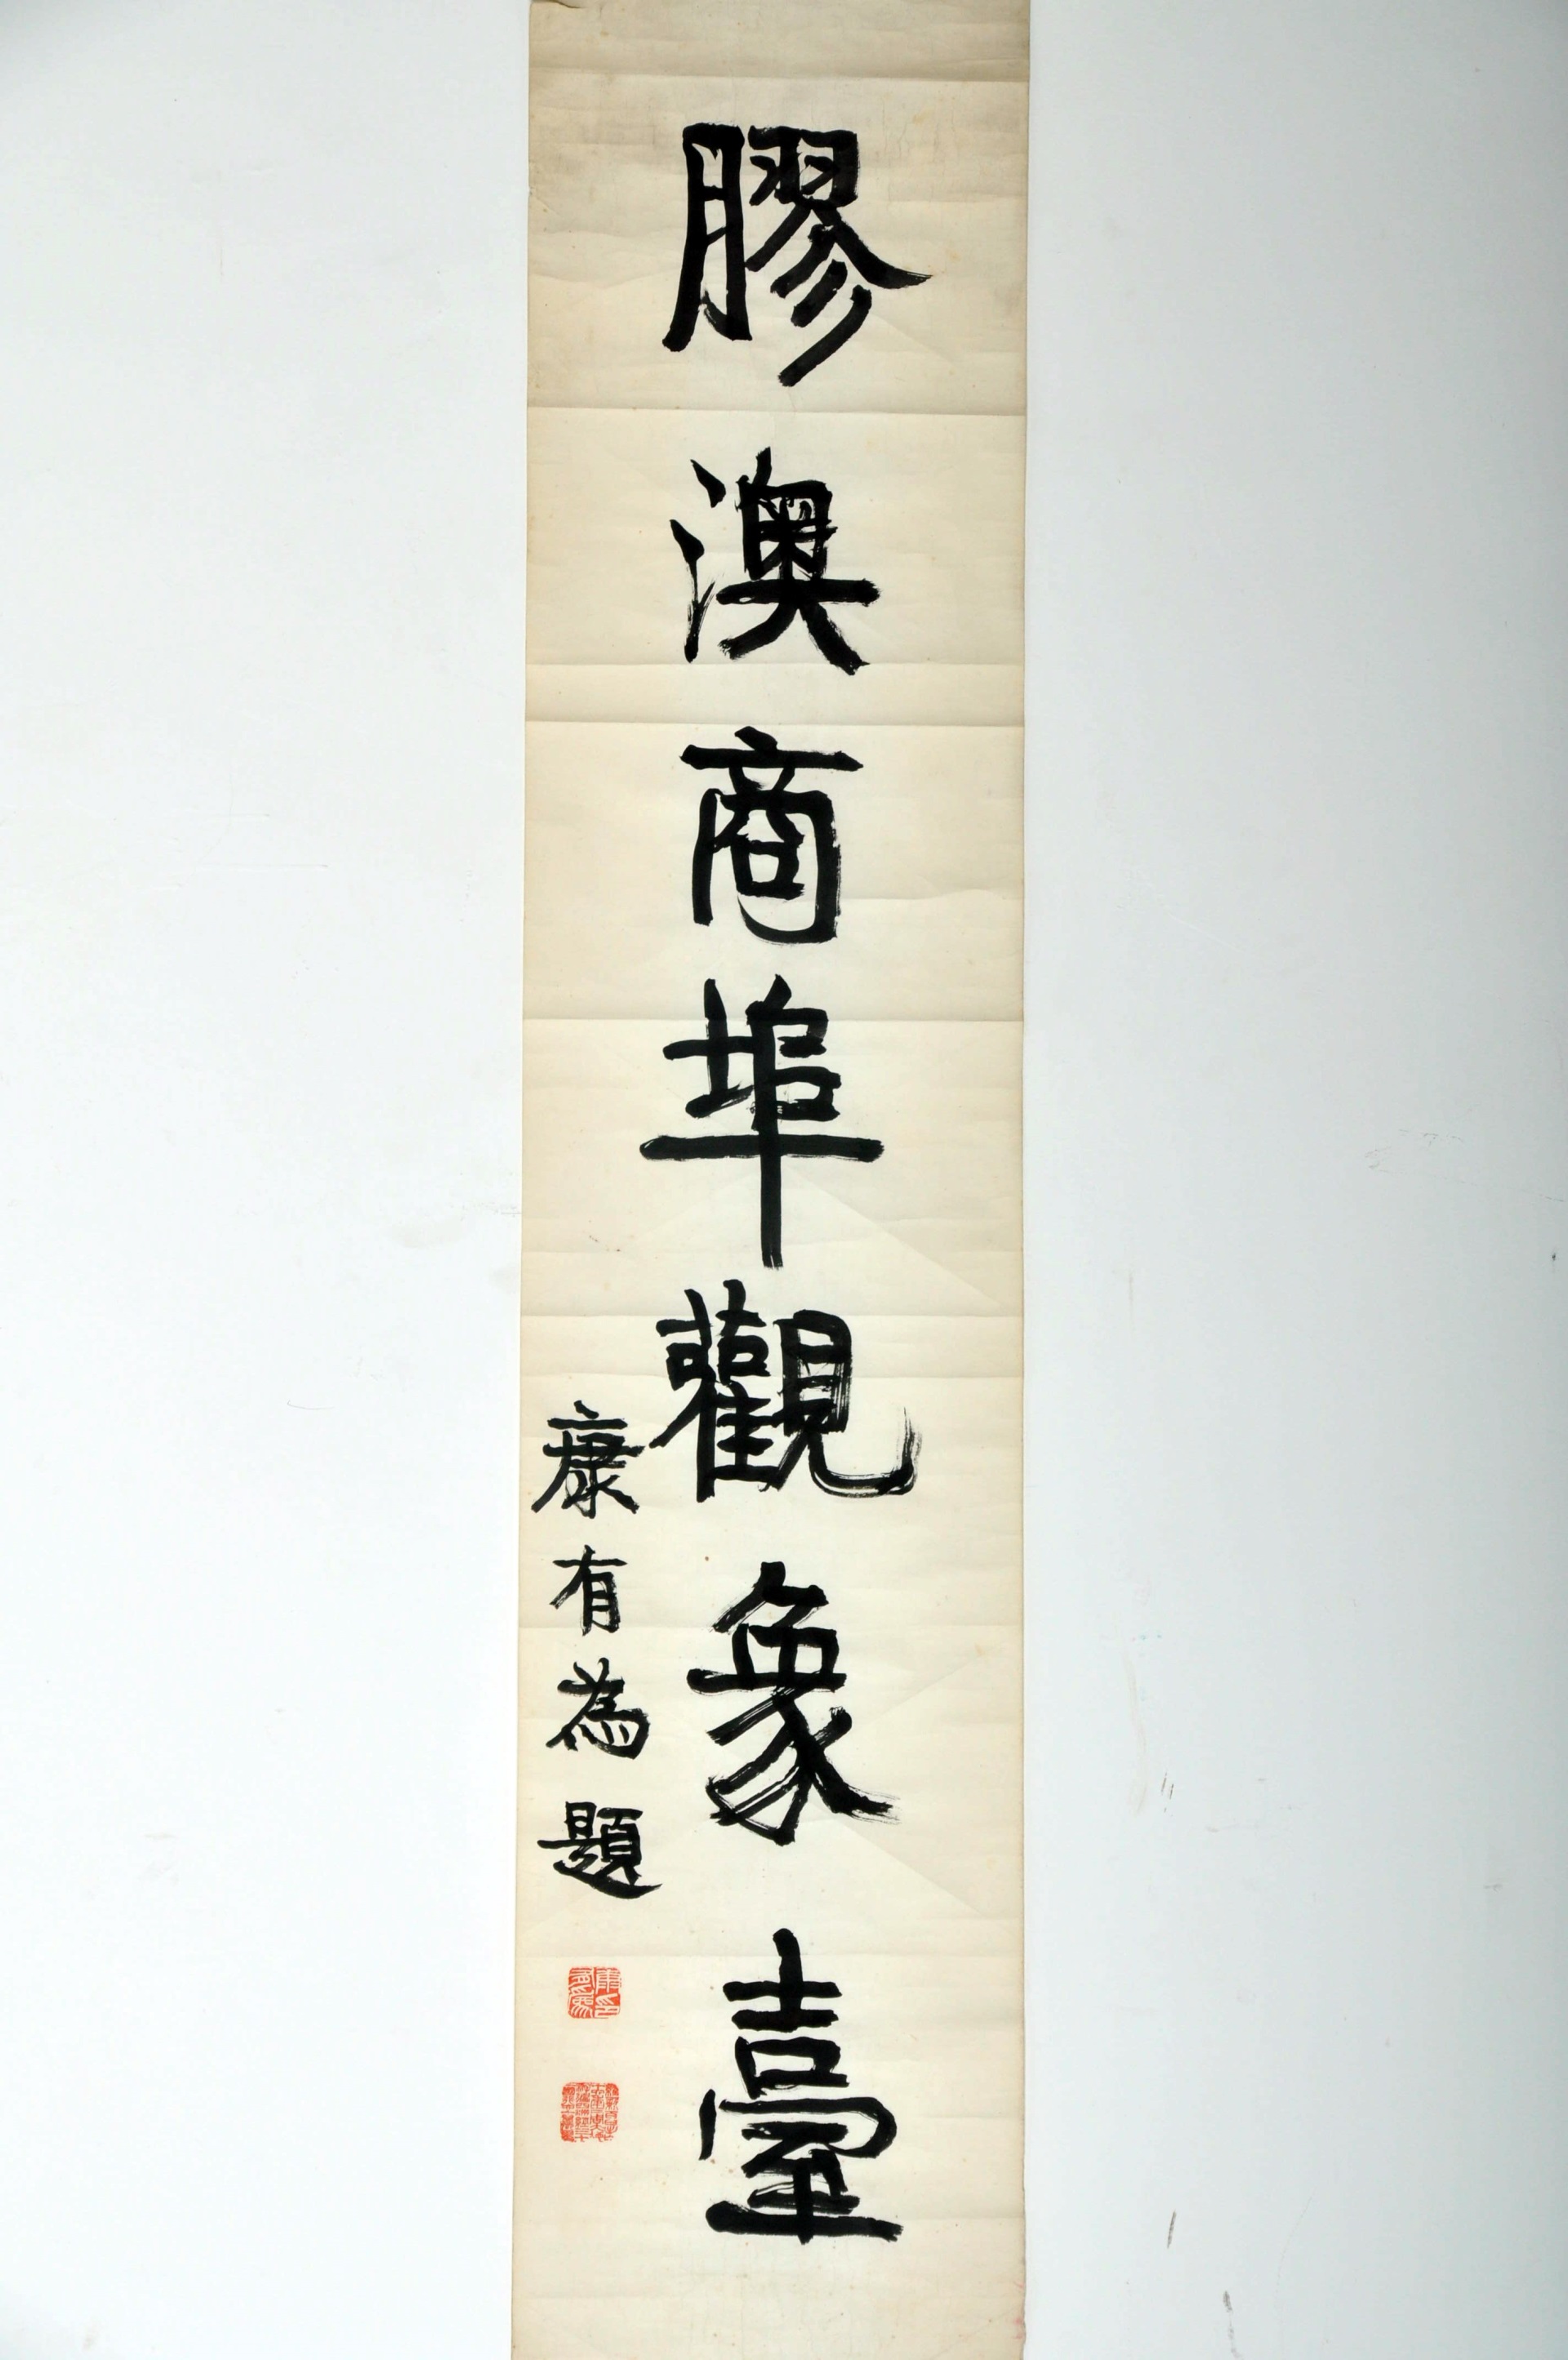 膠澳商埠觀象臺
康有為題